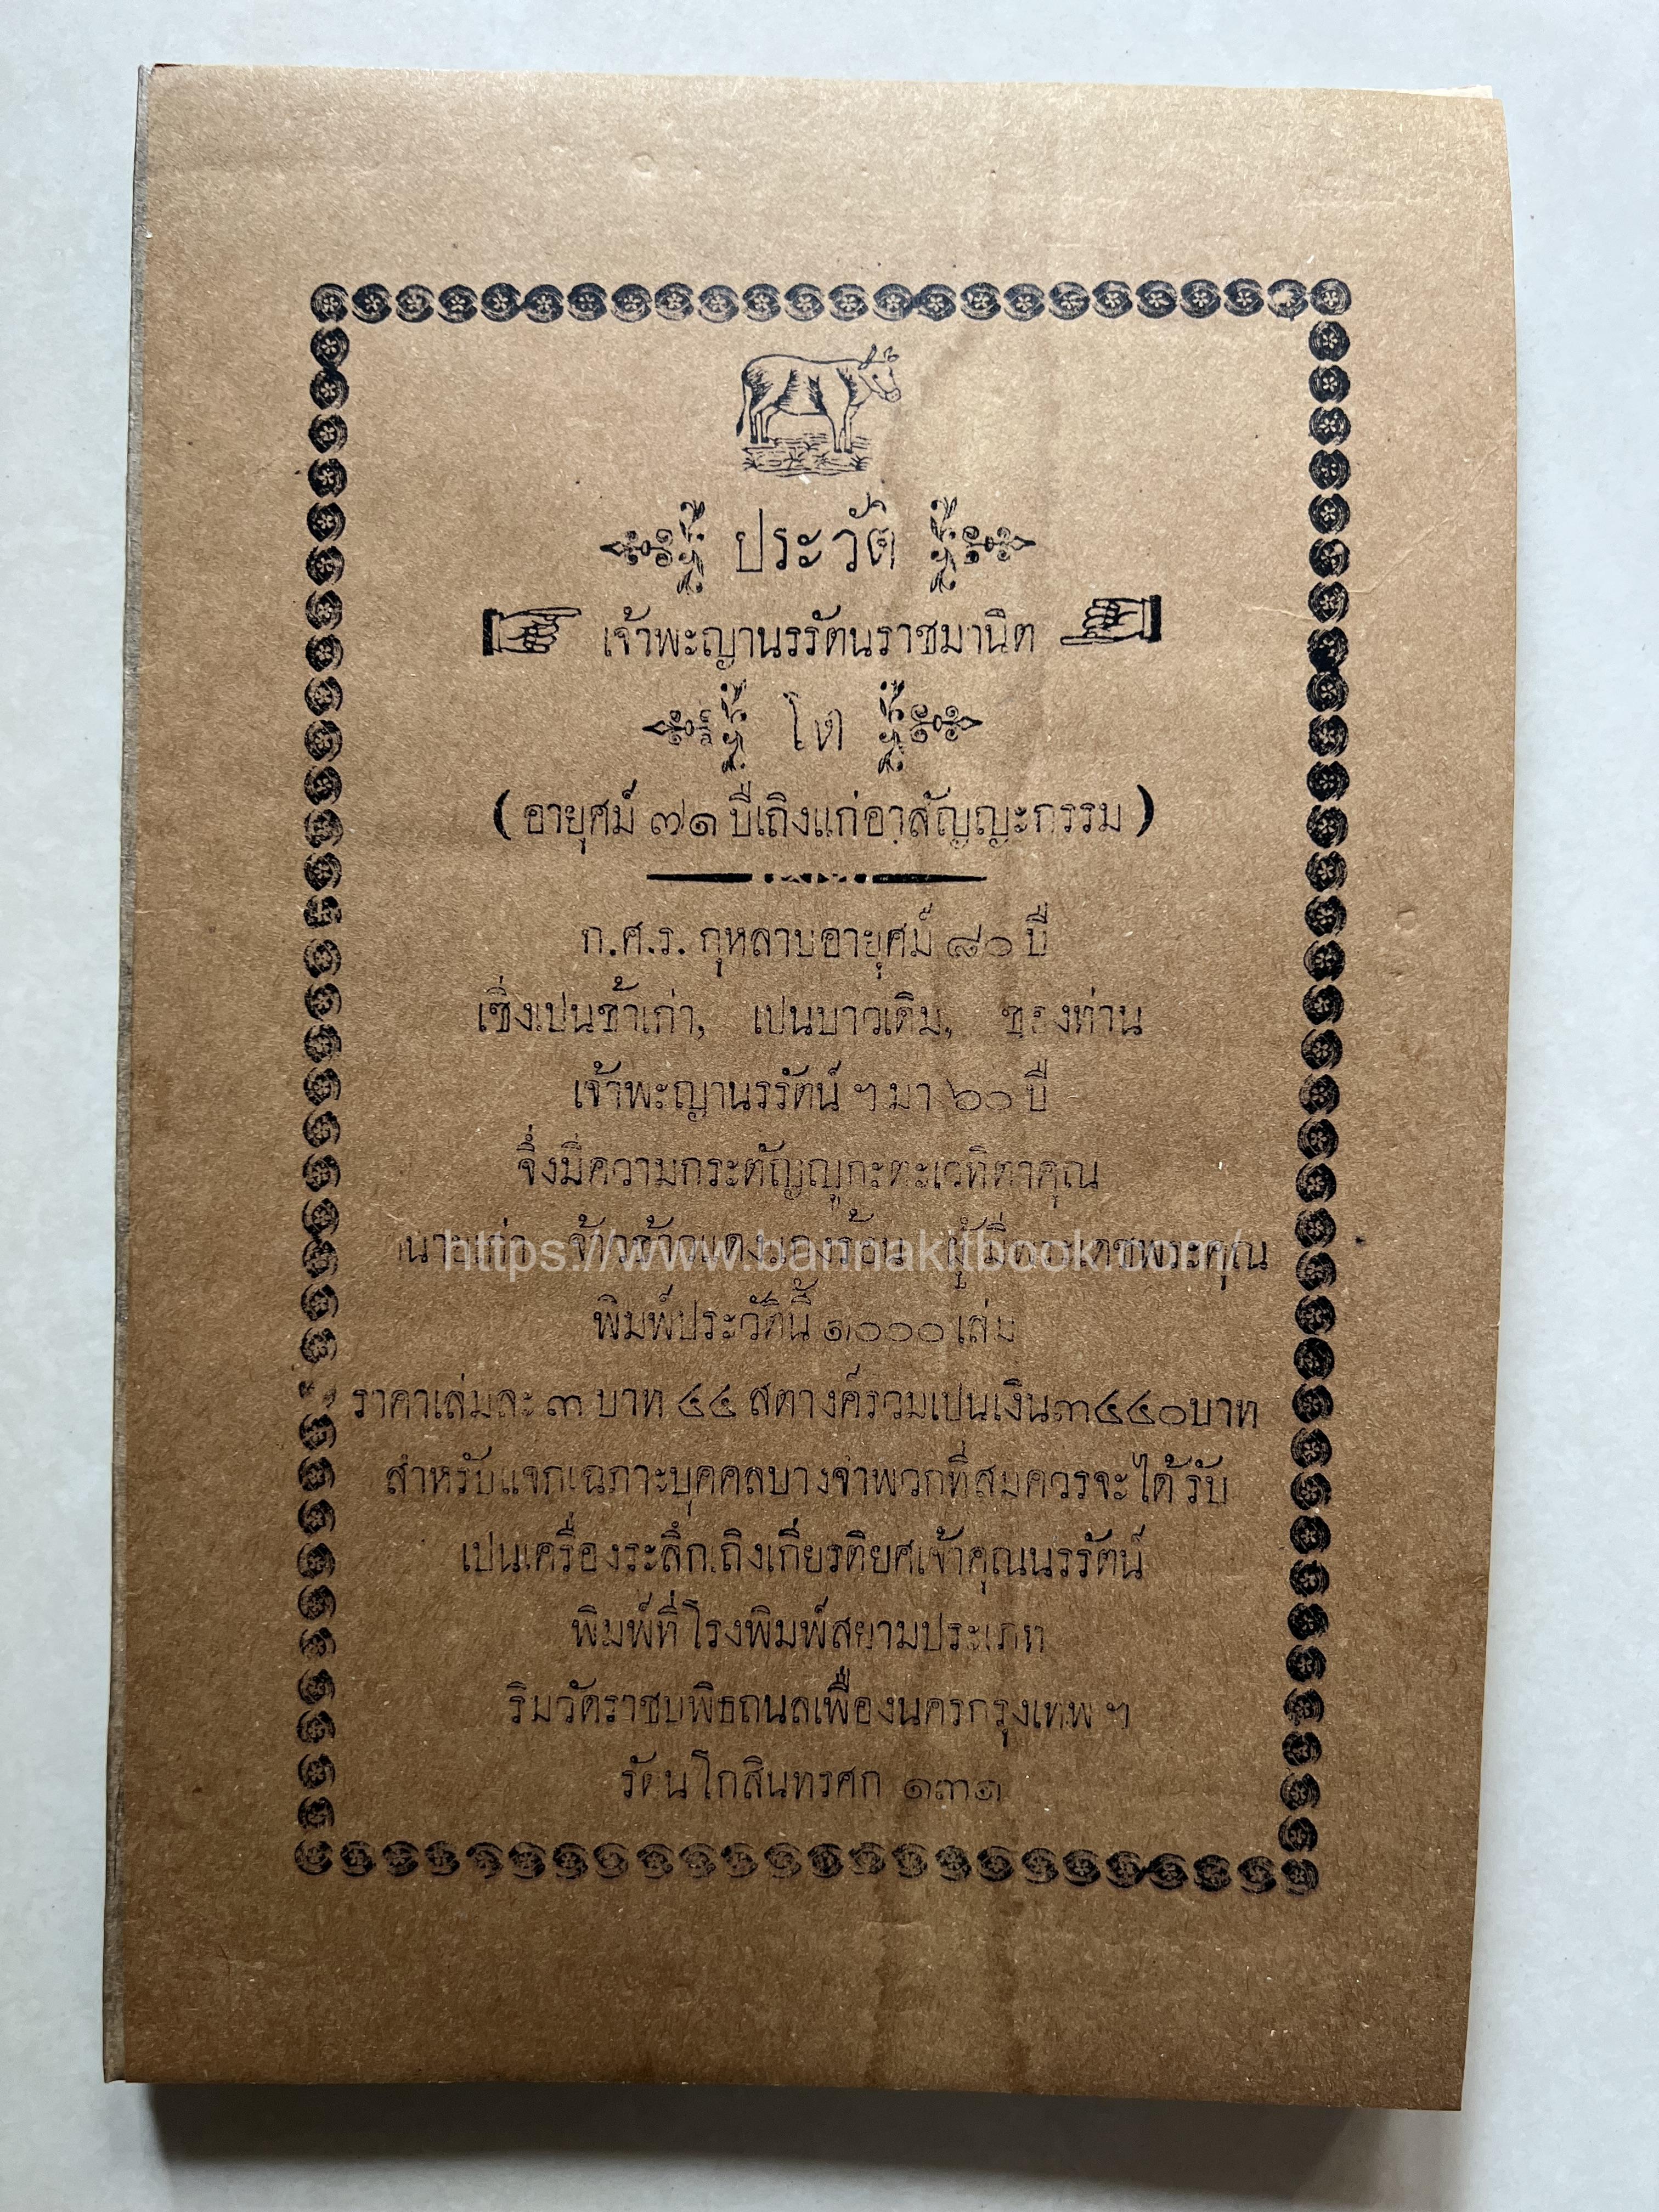 ประวัติ
เจ้าพะญานรรัตนราชมานิต
โต
(อายุศม์ ๗๑ ปีเถิงแก่อาสัญญะกรรม)
ก.ศ.ร. กุหลาบอายุศม์ ๘๐ ปี
เซึ่งเปนข้าเก่า, เปนบาวเดิม, ของท่าน
เจ้าพะญานรรัตน์ ฯ มา ๖๐ ปี
จึ่งมีความกระตัญญูกะตะเวทิตาคุณ
นายเก่า เข้าวข้าวแดงแกงร้อน ผู้มีพระเดชพระคุณ
https://www.bannakitbook.com/
พิมพ์ประวัตินี้ ๑๐๐๐ เล่ม
ราคาเล่มละ ๓ บาท ๔๔ สตางค์รวมเปนเงิน๓๔๔๐บาท
สำหรับแจกเฉภาะบุคคลบางจำพวกที่สมควรจะได้รับ
เปนเครื่องระลึกเถิงเกียรติยศเจ้าคุณนรรัตน์
พิมพ์ที่โรงพิมพ์สยามประเภท
ริมวัดราชบพิธถนลเฟื่องนครกรุงเทพฯ
รัตนโกสินทรศก ๑๓๑